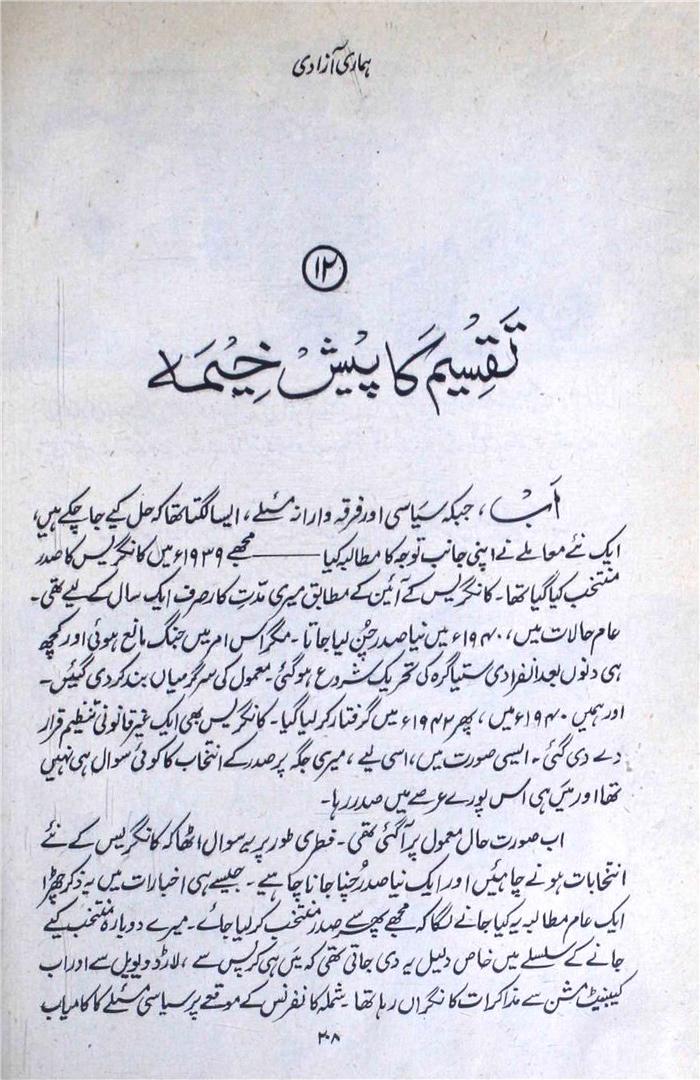 ہماری آزادی
۱۲
تقسیم کا پیش خیمہ
اب، جبکہ سیاسی اور فرقہ وارانہ مسئلے، ایسا لگتا تھا کہ حل کیے جا چکے ہیں،
ایک نئے معاملے نے اپنی جانب توجہ کا مطالبہ کیا ——— مجھے ۱۹۳۹ء میں کانگریس کا صدر
منتخب کیا گیا تھا۔ کانگریس کے آئین کے مطابق میری مدّتِ کار صرف ایک سال کے لیے تھی۔
عام حالات میں، ۱۹۴۰ء میں نیا صدر چُن لیا جاتا۔ مگر اس امر میں جنگ مانع ہوئی اور کچھ
ہی دنوں بعد انفرادی ستیاگرہ کی تحریک شروع ہوگئی۔ معمول کی سرگرمیاں بند کردی گئیں۔
اور ہمیں ۱۹۴۰ء میں، پھر ۱۹۴۲ء میں گرفتار کرلیا گیا۔ کانگریس بھی ایک غیر قانونی تنظیم قرار
دے دی گئی۔ ایسی صورت میں، اسی لیے، میری جگہ پر صدر کے انتخاب کا کوئی سوال ہی نہیں
تھا اور میں ہی اس پورے عرصے میں صدر رہا۔
اب صورت حال معمول پر آگئی تھی۔ فطری طور پر یہ سوال اٹھا کہ کانگریس کے نئے
انتخابات ہونے چاہئیں اور ایک نیا صدر چُنا جانا چاہیے۔ جیسے ہی اخبارات میں یہ ذکر چھڑا
ایک عام مطالبہ یہ کیا جانے لگا کہ مجھے پھر سے صدر منتخب کرلیا جائے۔ میرے دوبارہ منتخب کیے
جانے کے سلسلے میں خاص دلیل یہ دی جاتی تھی کہ میں ہی کرپس سے، لارڈ ویویل سے اور اب
کیبنیٹ مشن سے مذاکرات کا نگراں رہا تھا۔ شملہ کانفرنس کے موقعے پر سیاسی مسئلے کا کامیاب
۲۰۸